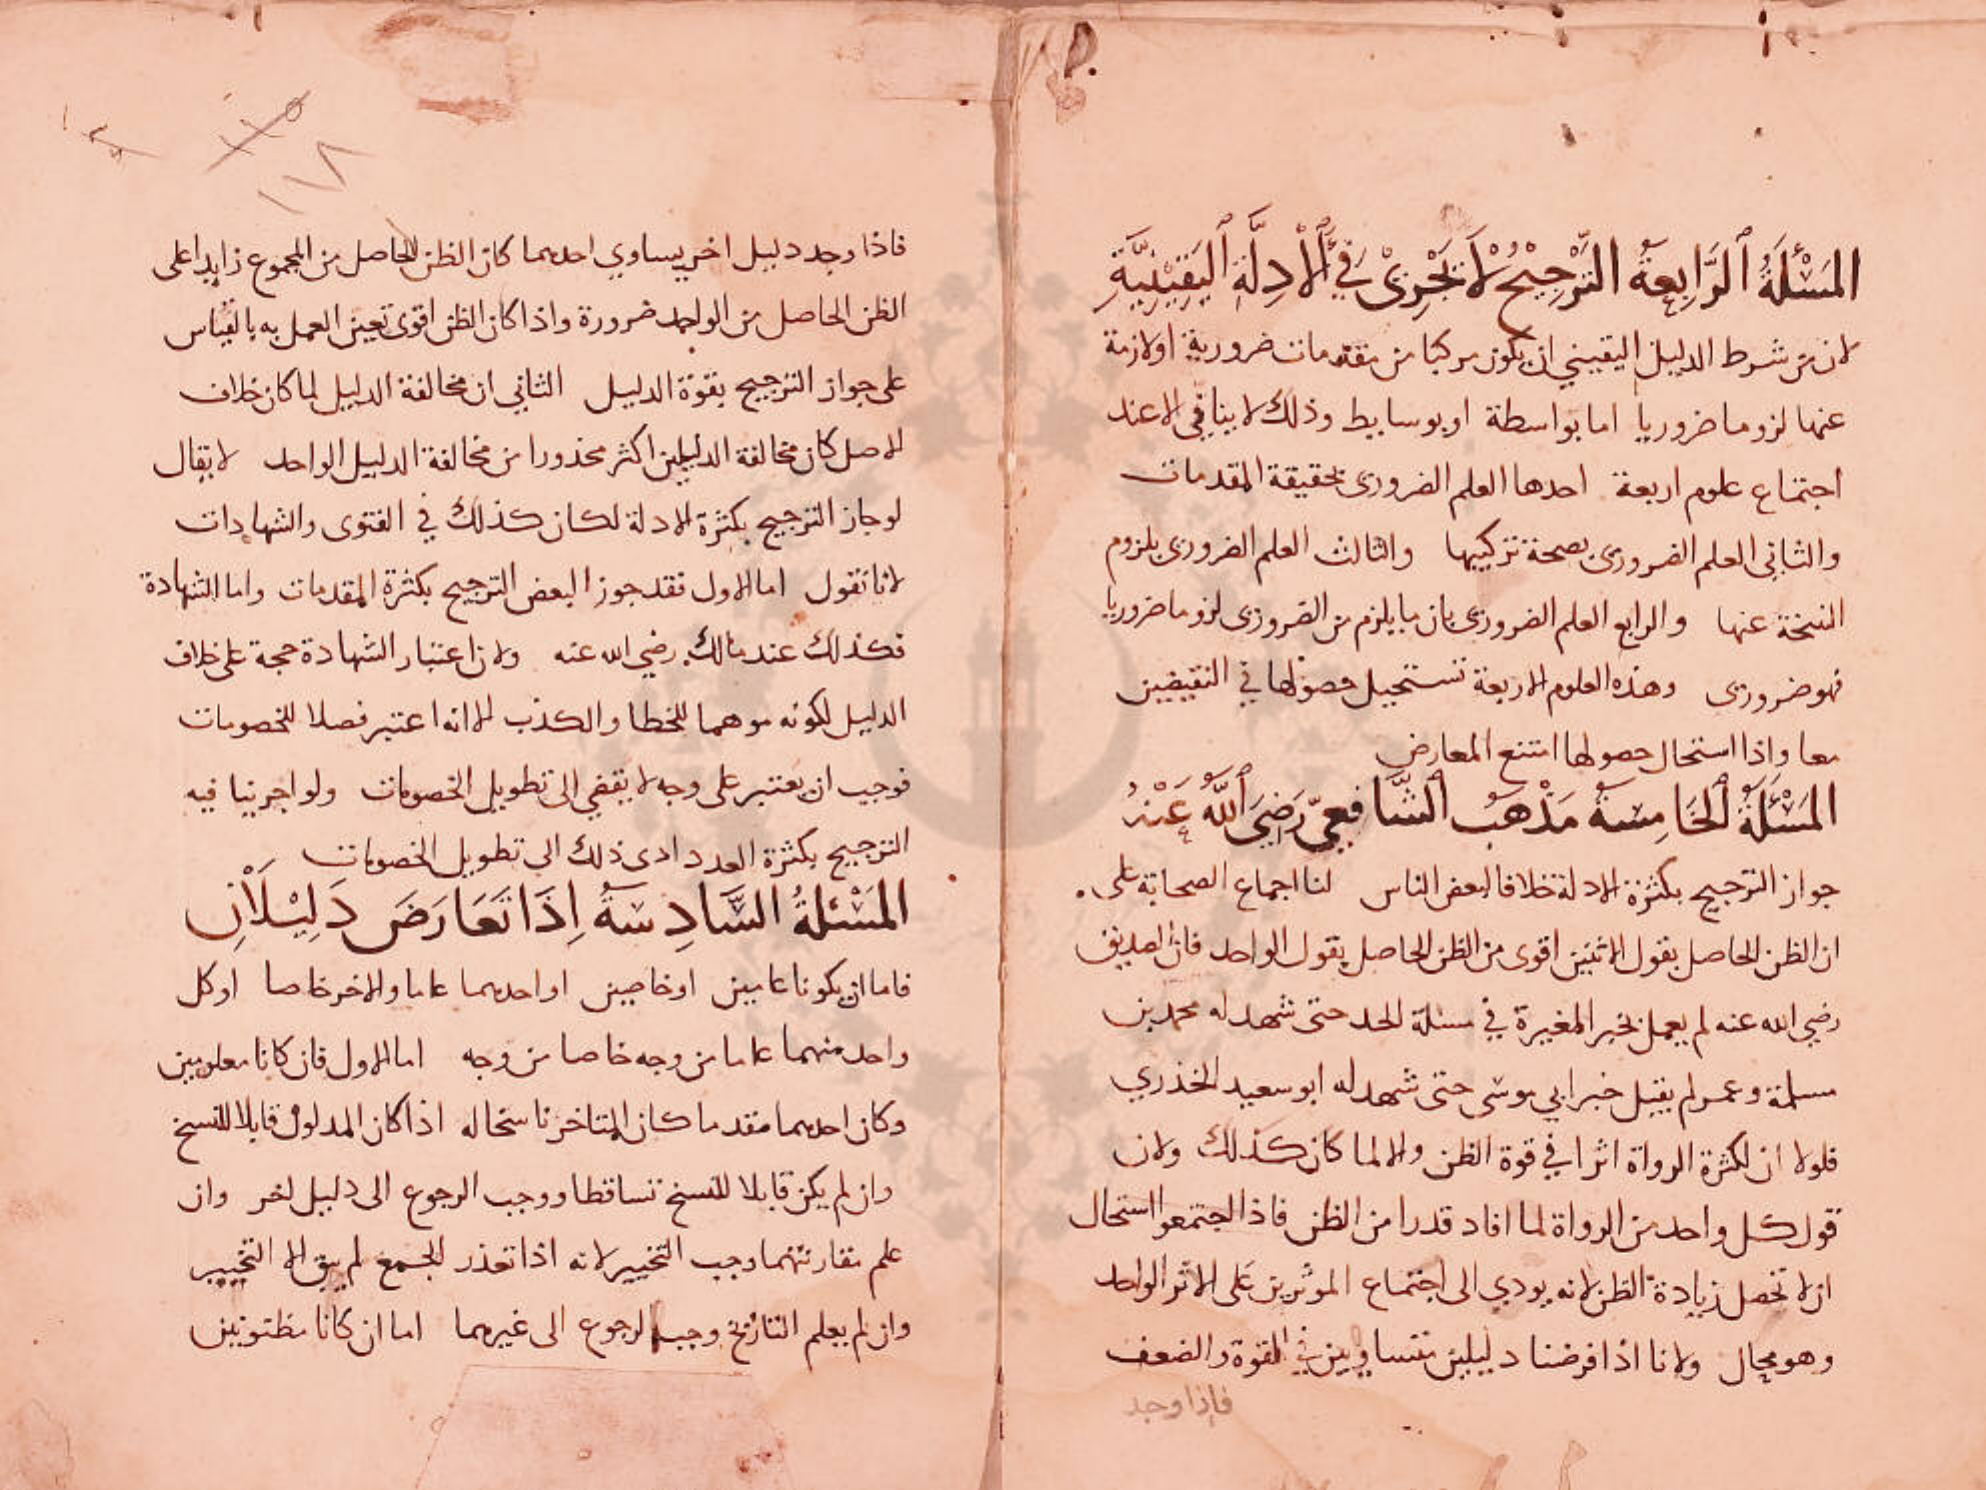 المَسْئَلَةُ ٱلرَّابِعَةُ التَّرْجِيْحُ لَا يَجْرِىْ فِي ٱلْأَدِلَّةِ ٱليَقِيْنِيَّةِ
لان من شرط الدليل اليقيني ان يكون مركبا من مقدمات ضرورية او لازمة
عنها لزوما ضروريا اما بواسطة او بوسايط وذلك لا يتاتى الا عند
اجتماع علوم اربعة احدها العلم الضرورى بحقيقة المقدمات
والثانى العلم الضرورى بصحة تركيبها والثالث العلم الضرورى بلزوم
النتيجة عنها والرابع العلم الضرورى بان ما يلزم من الضرورى لزوما ضروريا
فهو ضرورى وهذه العلوم الاربعة تستحيل حصولها في النقيضين
معا واذا استحال حصولها امتنع المعارض
المَسْئَلَةُ ٱلخَامِسَةُ مَذْهَبُ ٱلشَّافِعِيّ رَضِيَ ٱللَّهُ عَنْهُ
جواز الترجيح بكثرة الادلة خلافا لبعض الناس لنا اجماع الصحابة على
ان الظن الحاصل بقول الاثنين اقوى من الظن الحاصل بقول الواحد فان الصديق
رضي الله عنه لم يعمل بخبر المغيرة في مسئلة الجد حتى شهد له محمد بن
مسلمة وعمر لم يقبل خبر ابي موسى حتى شهد له ابو سعيد الخذري
فلولا ان لكثرة الرواة اثرا في قوة الظن والا لما كان كذلك ولان
قول كل واحد من الرواة لما افاد قدرا من الظن فاذا اجتمعوا استحال
ان لا تحصل زيادة الظن لانه يودي الى اجتماع الموثرين على الاثر الواحد
وهو محال ولانا اذا فرضنا دليلين متساويين في القوة والضعف
فإذا وجد
١١٥
١١٨
فاذا وجد دليل اخر يساوي احدهما كان الظن الحاصل من المجموع زايدا على
الظن الحاصل من الواحد ضرورة واذا كان الظن اقوى تعين العمل به بالقياس
على جواز الترجيح بقوة الدليل الثاني ان مخالفة الدليل لما كان خلاف
الاصل كان مخالفة الدليلين اكثر محذورا من مخالفة الدليل الواحد لا يقال
لو جاز الترجيح بكثرة الادلة لكان كذلك في الفتوى والشهادات
لانا نقول اما الاول فقد جوز البعض الترجيح بكثرة المقدمات واما الشهادة
فكذلك عند مالك رضي الله عنه ولان اعتبار الشهادة حجة على خلاف
الدليل لكونه موهما للخطا والكذب الا انه اعتبر فصلا للخصومات
فوجب ان يعتبر على وجه لا يقضي الى تطويل الخصومات ولو اجرينا فيه
الترجيح بكثرة العدد ادى ذلك الى تطويل الخصومات
المَسْئَلَةُ السَّادِسَةُ إِذَا تَعَارَضَ دَلِيْلَانِ
فاما ان يكونا عامين او خاصين او احدهما عاما والاخر خاصا او كل
واحد منهما عاما من وجه خاصا من وجه اما الاول فان كانا معلومين
وكان احدهما متقدما كان المتاخر ناسخا له اذا كان المدلول قابلا للنسخ
وان لم يكن قابلا للنسخ تساقطا ووجب الرجوع الى دليل اخر وان
علم تقارنهما وجب التخيير لانه اذا تعذر الجمع لم يبق الا التخيير
وان لم يعلم التاريخ وجب الرجوع الى غيرهما اما ان كانا مظنونين